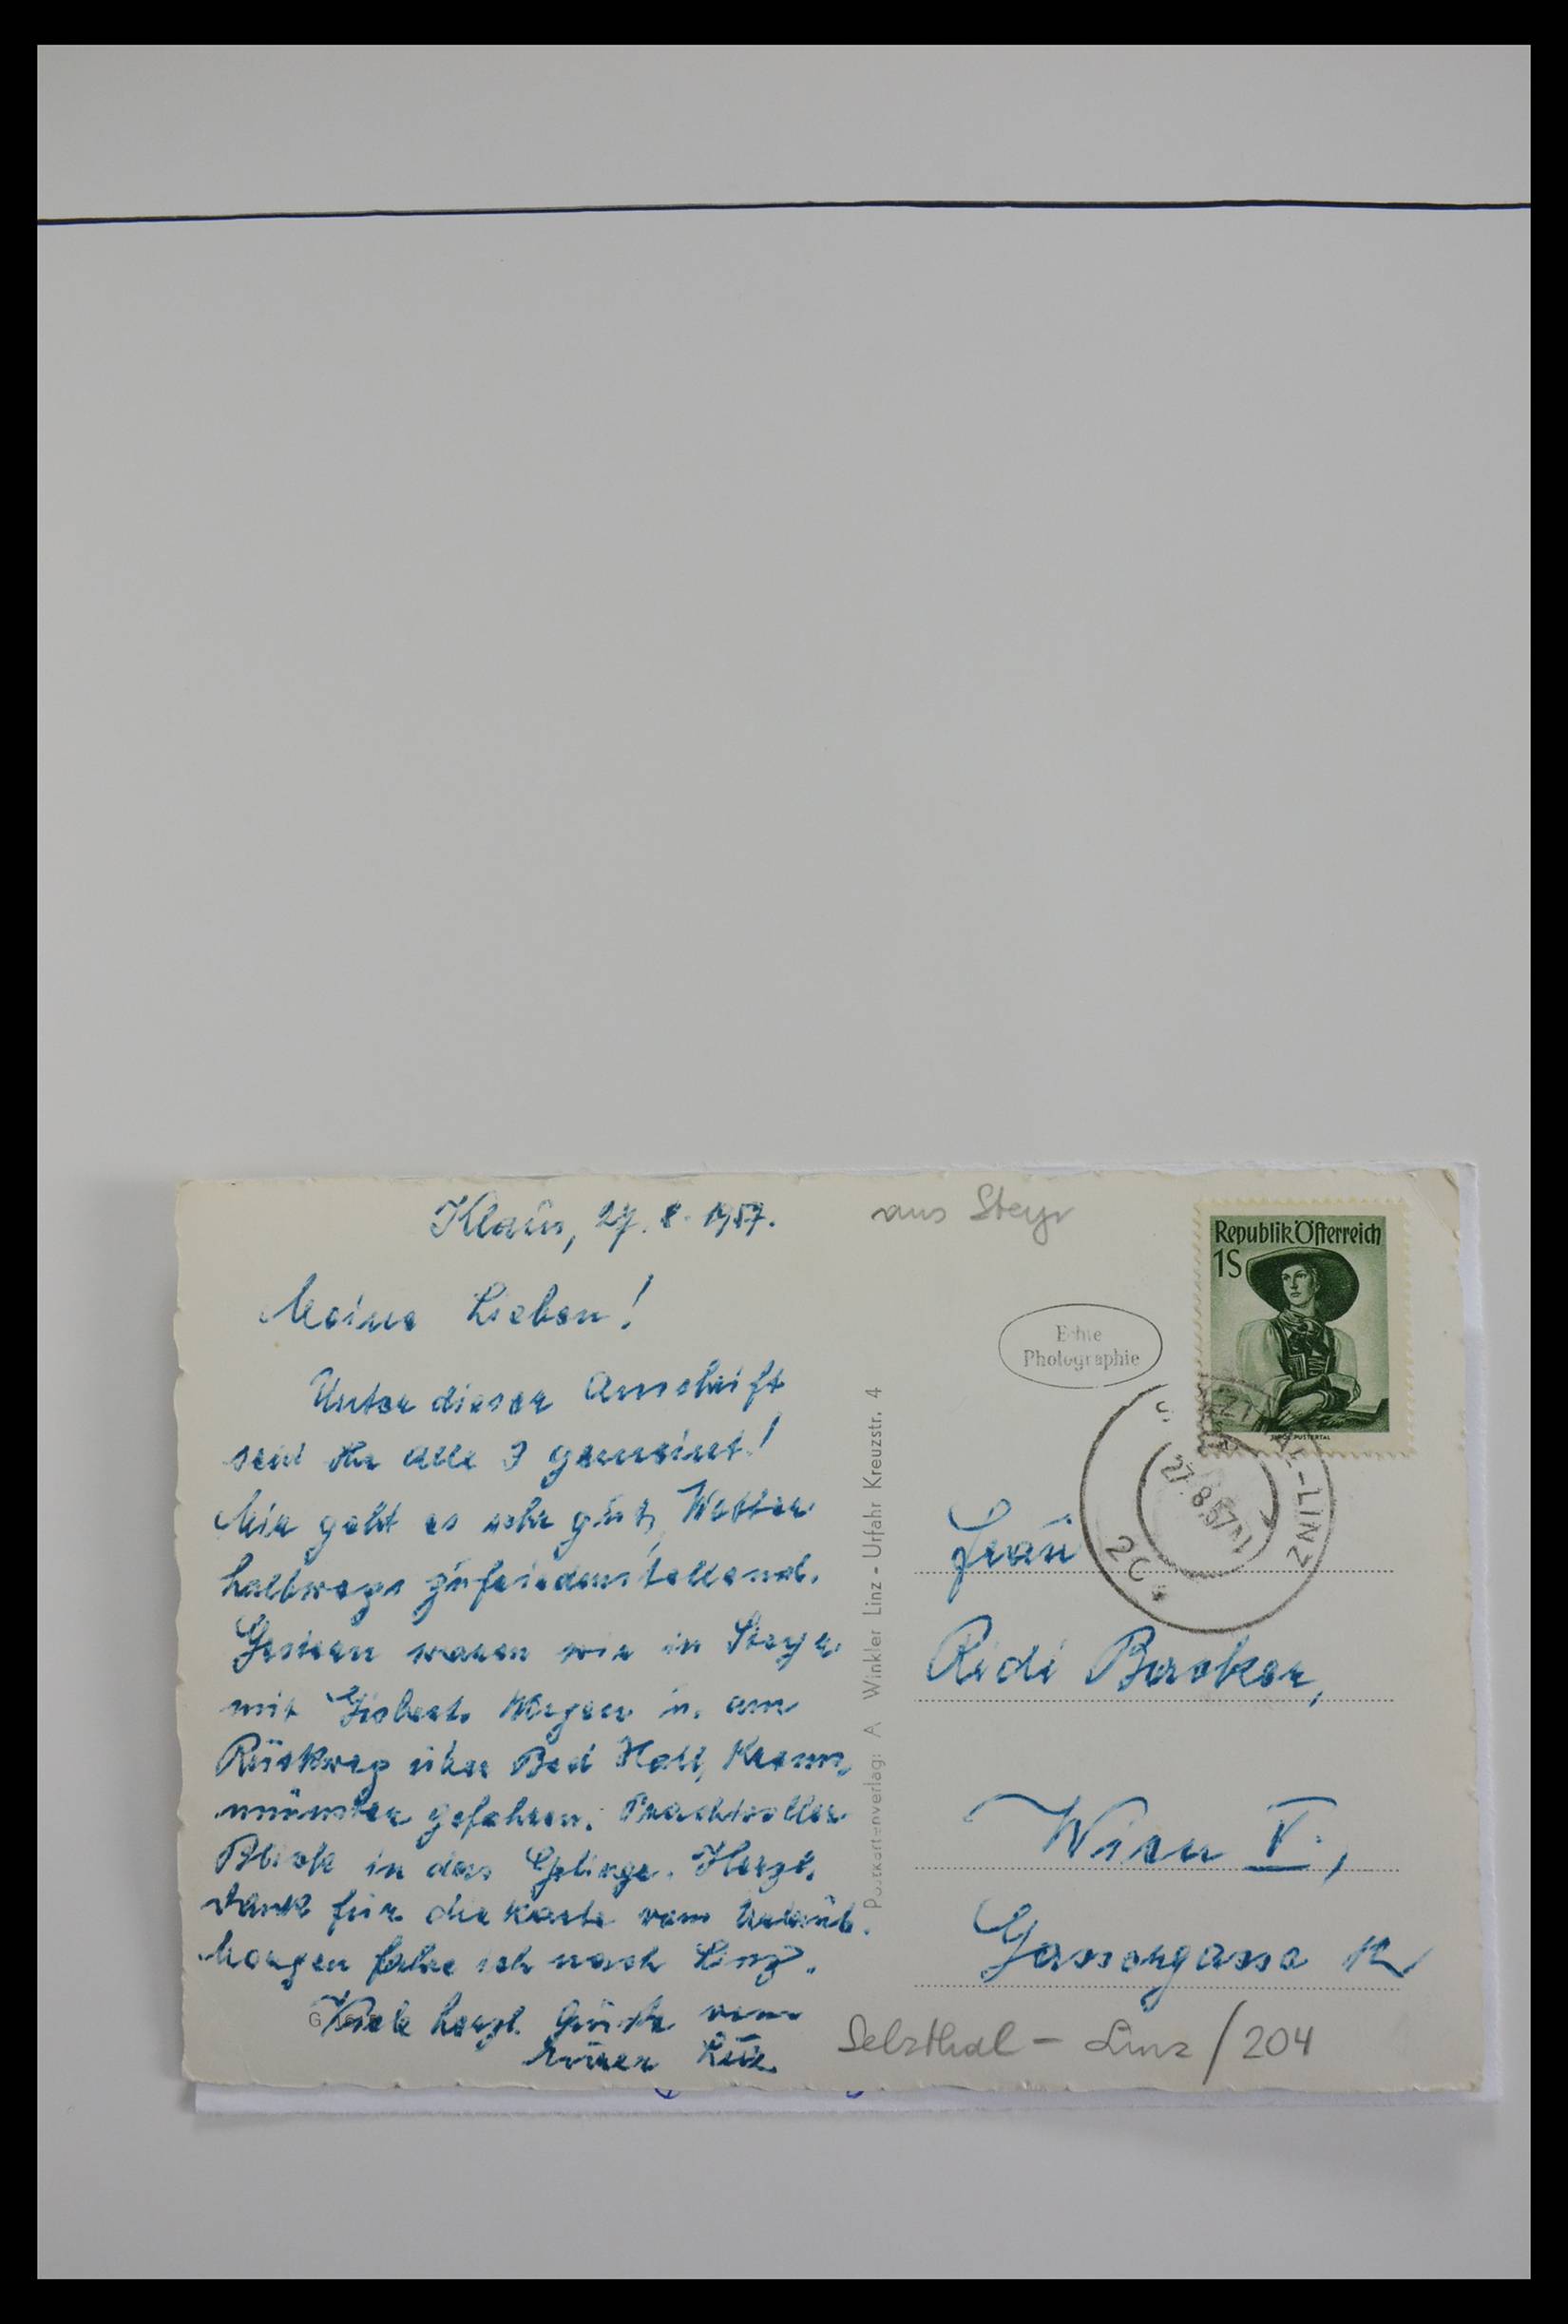 Klaus, 27. 8. 1957.
Meine Lieben!
Unter dieser Anschrift
seid Ihr alle 3 gemeint!
Mir geht es sehr gut, Wetter
halbwegs zufriedenstellend.
Gestern waren wir in Steyr
mit Wagen u. am
Rückweg über Bad Hall, Krems-
münster gefahren. Prachtvoller
Blick in das Gebirge. Herzl.
Dank für die Karte vom Urlaub.
Morgen fahre ich nach Linz.
Viele herzl. Grüße von
Eurer
aus Steyr
Republik Österreich
1S
PUSTERTAL
Echte
Photographie
27.8.57
LINZ
20
Postkartenverlag: A Winkler Linz - Urfahr Kreuzstr. 4
Frau
Wien V.,
Gassergasse
Selzthal - Linz / 204